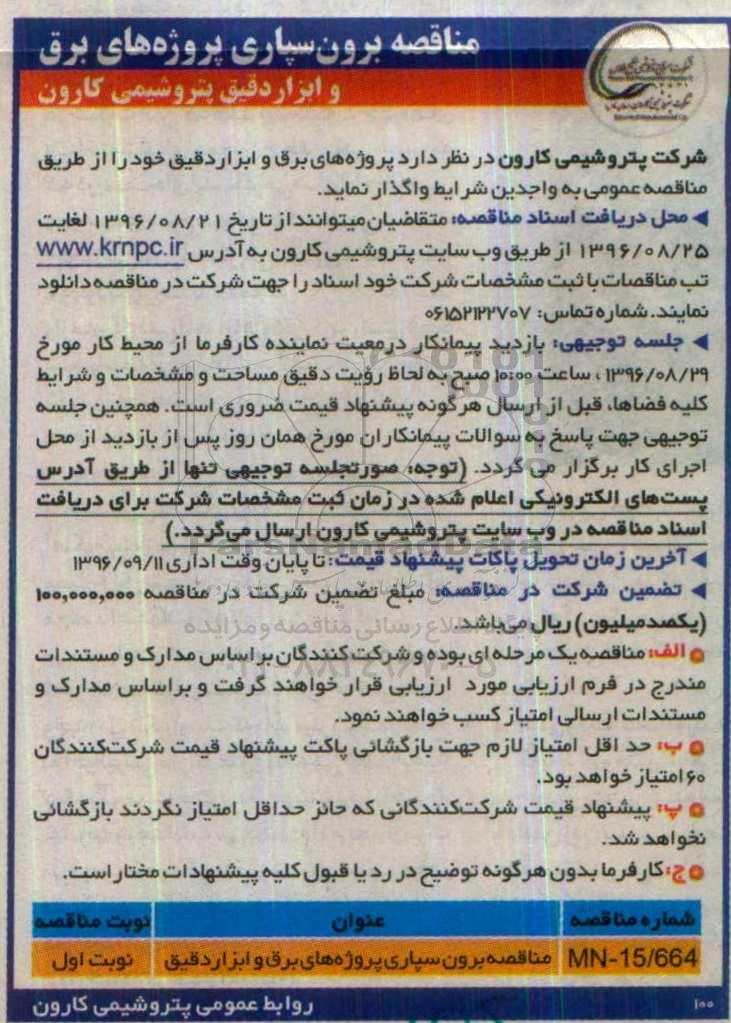 مناقصه برون‌سپاری پروژه‌های برق
و ابزار دقیق پتروشیمی کارون
شرکت پتروشیمی کارون در نظر دارد پروژه‌های برق و ابزار دقیق خود را از طریق
مناقصه عمومی به واجدین شرایط واگذار نماید.
◄ محل دریافت اسناد مناقصه: متقاضیان میتوانند از تاریخ ۱۳۹۶/۰۸/۲۱ لغایت
۱۳۹۶/۰۸/۲۵ از طریق وب سایت پتروشیمی کارون به آدرس www.krnpc.ir
تب مناقصات با ثبت مشخصات شرکت خود اسناد را جهت شرکت در مناقصه دانلود
نمایند. شماره تماس: ۰۶۱۵۲۱۲۲۷۰۷
◄ جلسه توجیهی: بازدید پیمانکار درمعیت نماینده کارفرما از محیط کار مورخ
۱۳۹۶/۰۸/۲۹ ، ساعت ۱۰:۰۰ صبح به لحاظ رؤیت دقیق مساحت و مشخصات و شرایط
کلیه فضاها، قبل از ارسال هرگونه پیشنهاد قیمت ضروری است. همچنین جلسه
توجیهی جهت پاسخ به سوالات پیمانکاران مورخ همان روز پس از بازدید از محل
اجرای کار برگزار می گردد. (توجه: صورتجلسه توجیهی تنها از طریق آدرس
پست‌های الکترونیکی اعلام شده در زمان ثبت مشخصات شرکت برای دریافت
اسناد مناقصه در وب سایت پتروشیمی کارون ارسال می‌گردد.)
◄ آخرین زمان تحویل پاکات پیشنهاد قیمت: تا پایان وقت اداری ۱۳۹۶/۰۹/۱۱
◄ تضمین شرکت در مناقصه: مبلغ تضمین شرکت در مناقصه ۱۰۰,۰۰۰,۰۰۰
(یکصدمیلیون) ریال می‌باشد
الف: مناقصه یک مرحله ای بوده و شرکت کنندگان بر اساس مدارک و مستندات
مندرج در فرم ارزیابی مورد ارزیابی قرار خواهند گرفت و براساس مدارک و
مستندات ارسالی امتیاز کسب خواهند نمود.
ب: حد اقل امتیاز لازم جهت بازگشائی پاکت پیشنهاد قیمت شرکت‌کنندگان
۶۰ امتیاز خواهد بود.
پ: پیشنهاد قیمت شرکت‌کنندگانی که حائز حداقل امتیاز نگردند بازگشائی
نخواهد شد.
ج: کارفرما بدون هرگونه توضیح در رد یا قبول کلیه پیشنهادات مختار است.
شماره مناقصه عنوان نوبت مناقصه
MN-15/664 مناقصه برون سپاری پروژه‌های برق و ابزار دقیق نوبت اول
۱۰۰ روابط عمومی پتروشیمی کارون